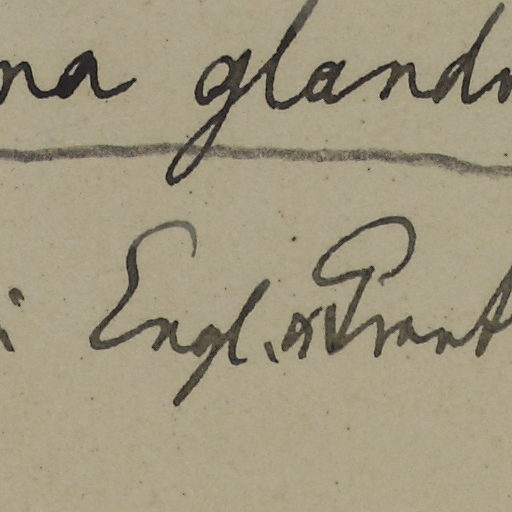 na glandu
i Engl. & Prant